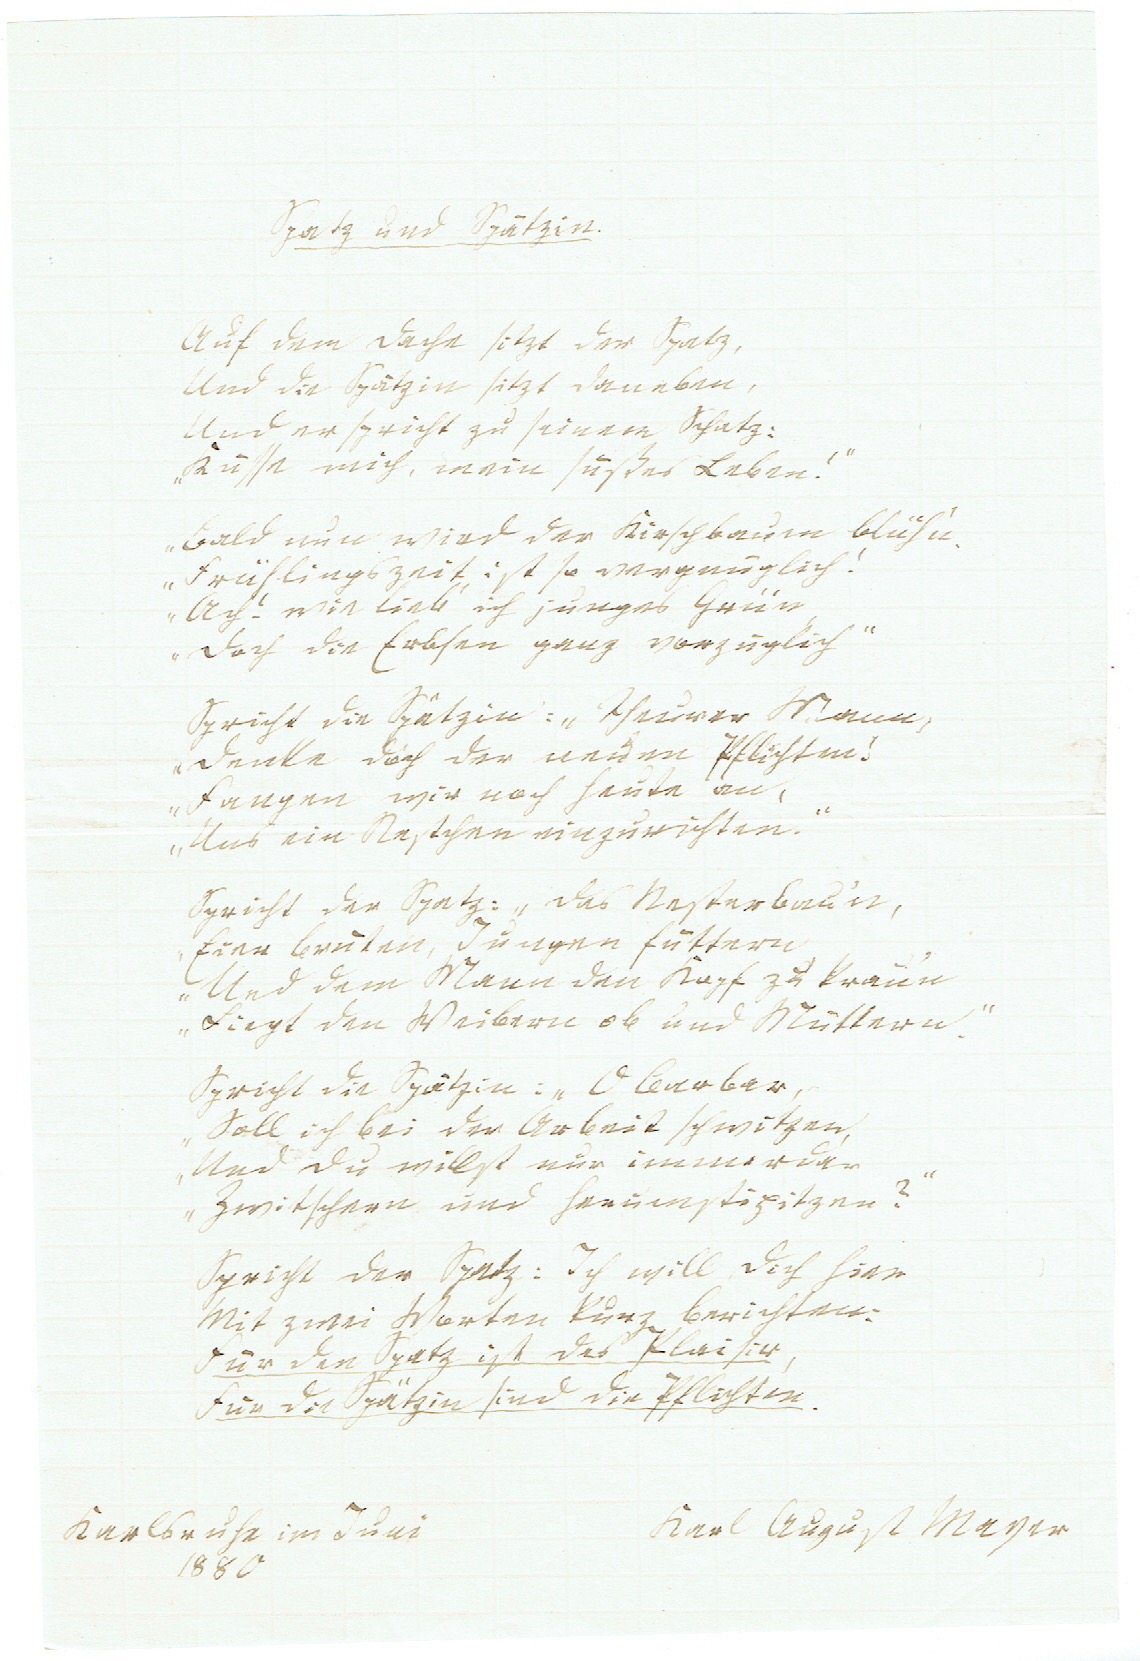 Spatz und Spätzin.
Auf dem Dache sitzt der Spatz,
Und die Spätzin sitzt daneben,
Und er spricht zu seinem Schatz:
„Küsse mich, mein süßes Leben!“
„Bald nun wird der Kirschbaum blüh'n,
„Frühlingszeit ist so vergnüglich!
„Ach! wie lieb' ich junges Grün
„Doch die Erbsen ganz vorzüglich“
Spricht die Spätzin: „Theurer Mann,
„Denke doch der neuen Pflichten!
„Fangen wir noch heute an,
„Uns ein Nestchen einzurichten.“
Spricht der Spatz: „Das Nesterbau'n,
„Eier brüten, Jungen füttern
„Und dem Mann den Kopf zu krau'n
„Liegt den Weibern ob und Müttern.“
Spricht die Spätzin: „O Barbar,
„Soll ich bei der Arbeit schwitzen,
„Und du willst nur immerdar
„Zwitschern und herumstipitzen?“
Spricht der Spatz: Ich will dich hier
Mit zwei Worten kurz berichten:
Für den Spatz ist das Plaisir,
Für die Spätzin sind die Pflichten.
Karlsruhe im Juni
1880
Karl August Mayer